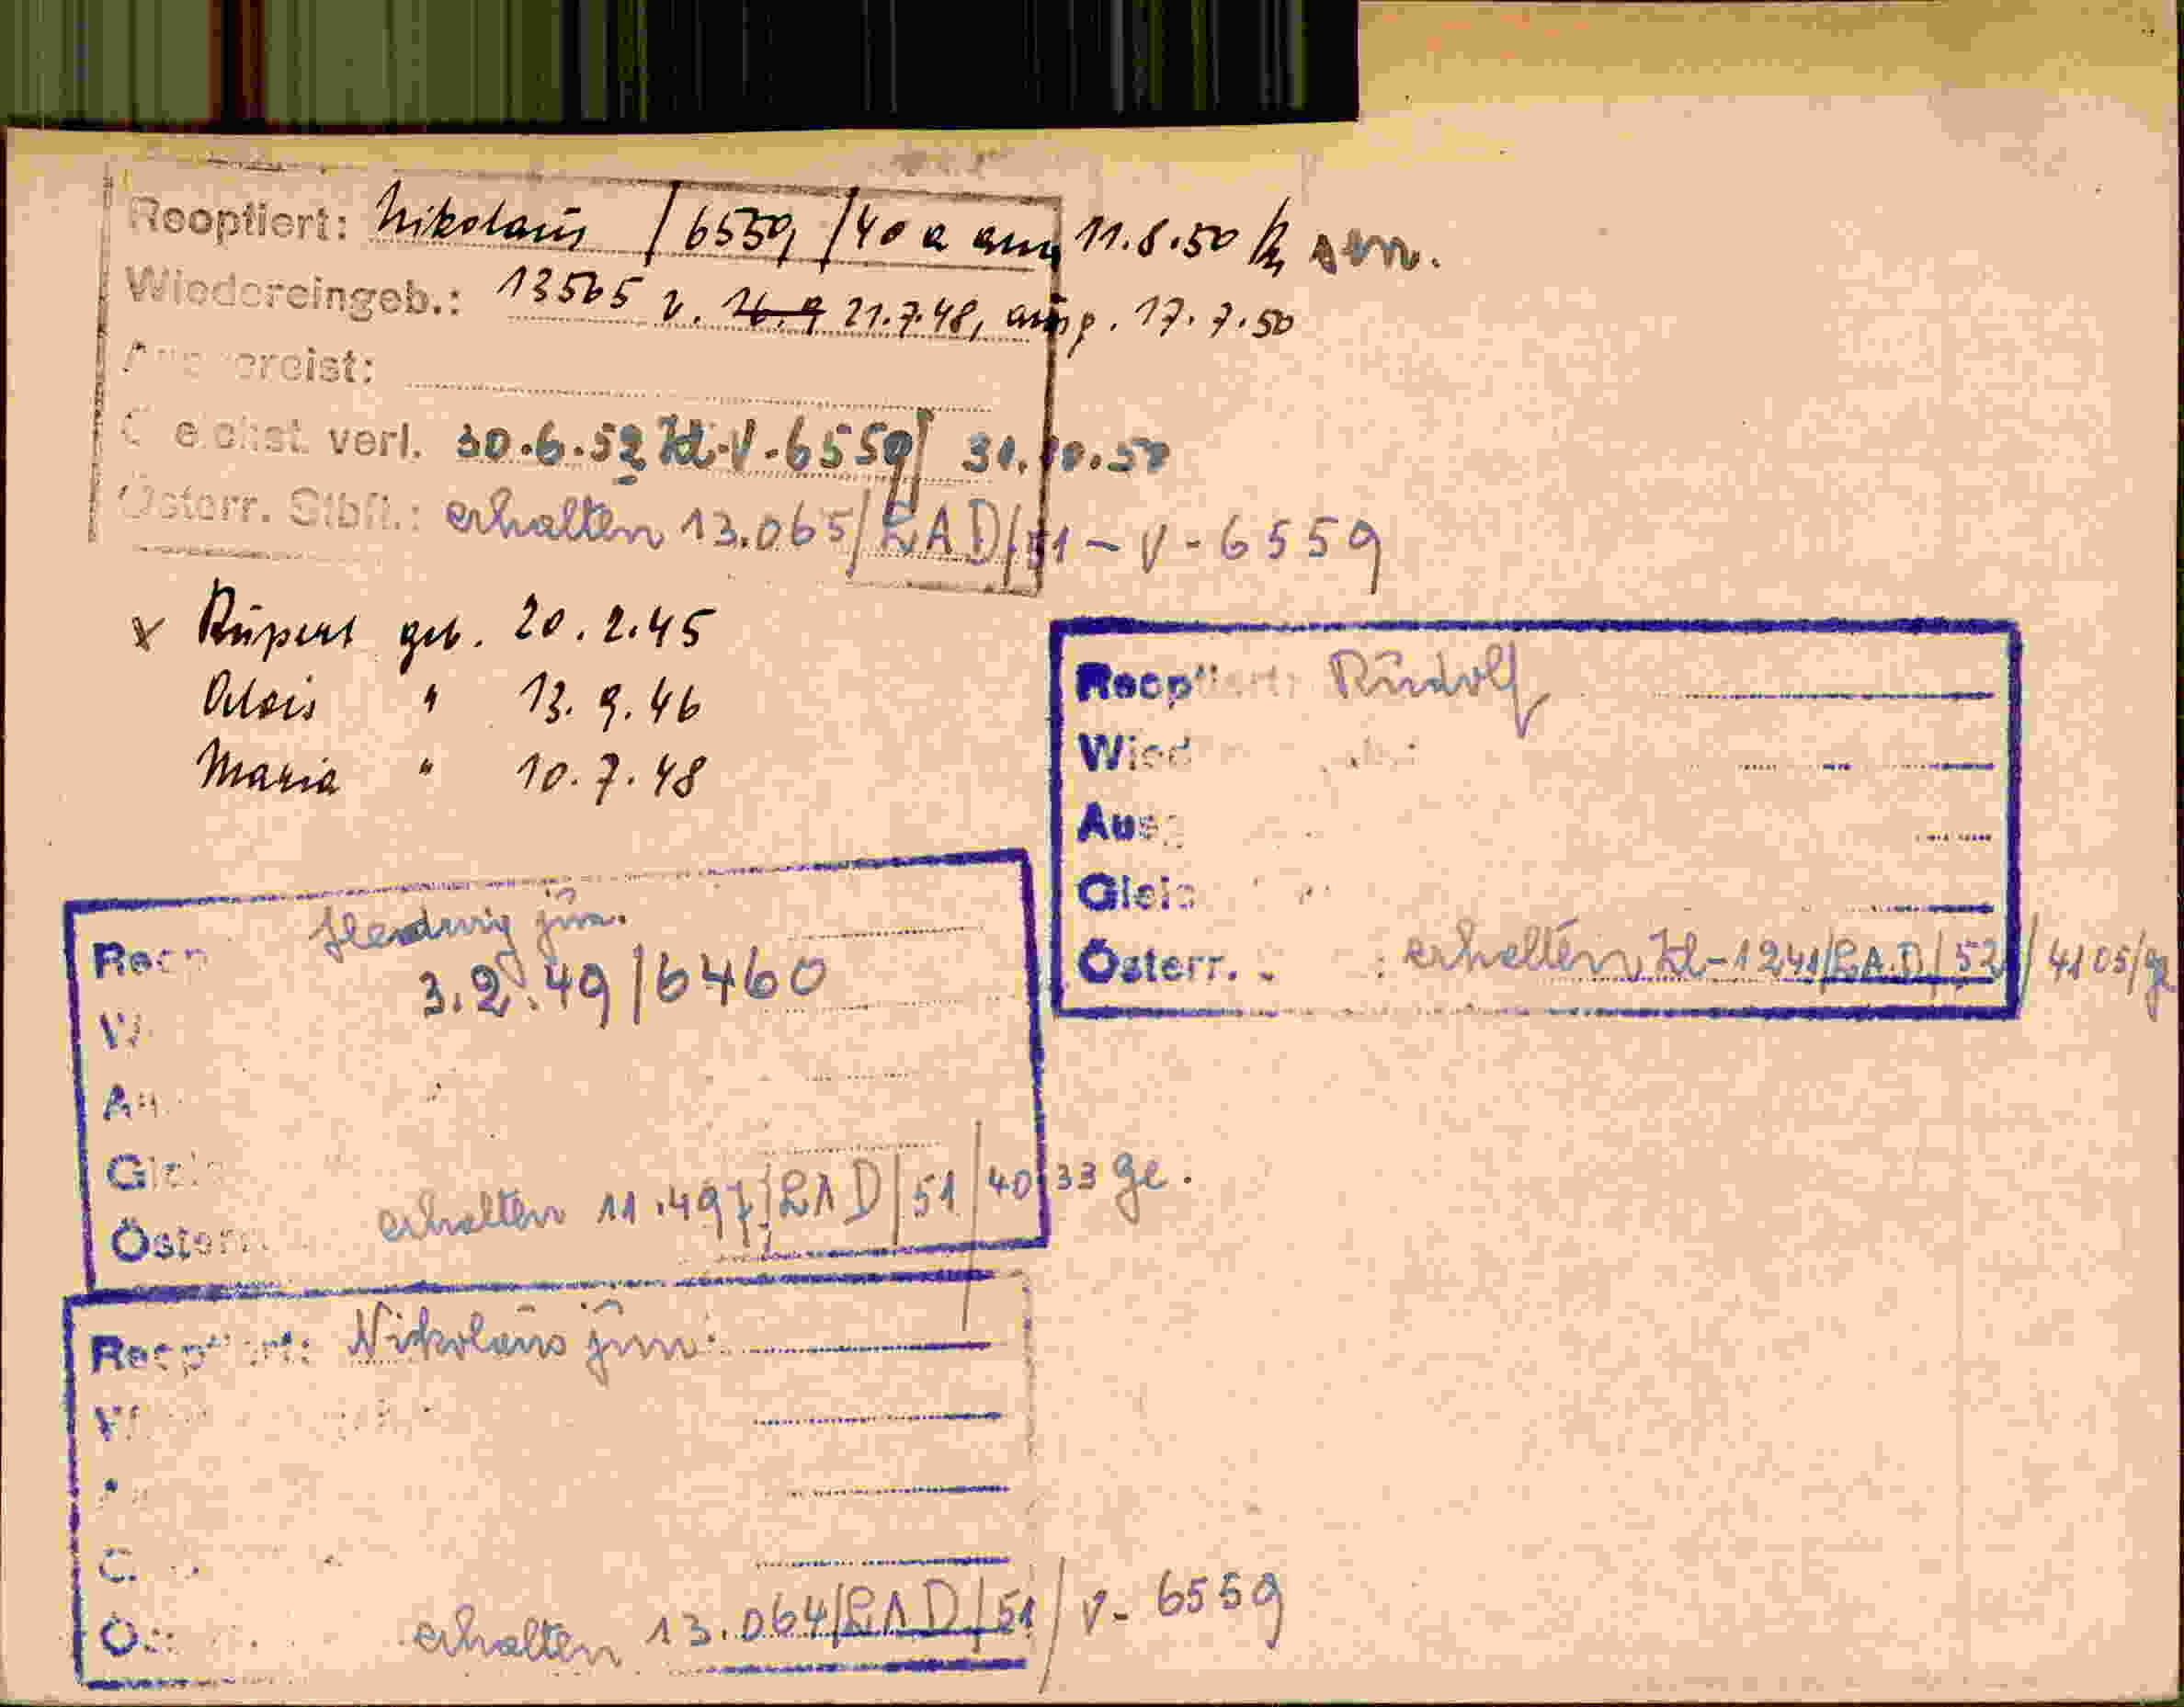 Reoptiert: Nikolaus /6559/40 a am 11.8.50 sen.
Wiedereingeb.: 13565 v. 21.7.48, ausg. 17.7.50
Ausgereist:
Gleichst. verl. 30.6.52 Zl.-V-6559/ 31.10.50
Österr. Stbft.: erhalten 13.065/LAD/51-V-6559
x Rupert geb. 20.2.45
Alois " 13.9.46
Maria " 10.7.48
Reoptiert: Rudolf
Wied
Ausg
Gleic
Österr. : erhalten Zl-1241/LAD/52/4105/ge
Reop Hedwig jun.
3.2.49/6460
Wi
Au
Gleic
Österr. erhalten 11.497/LAD/51/4033 ge.
Reoptiert: Nikolaus jun.
Ö erhalten 13.064/LAD/51/V-6559